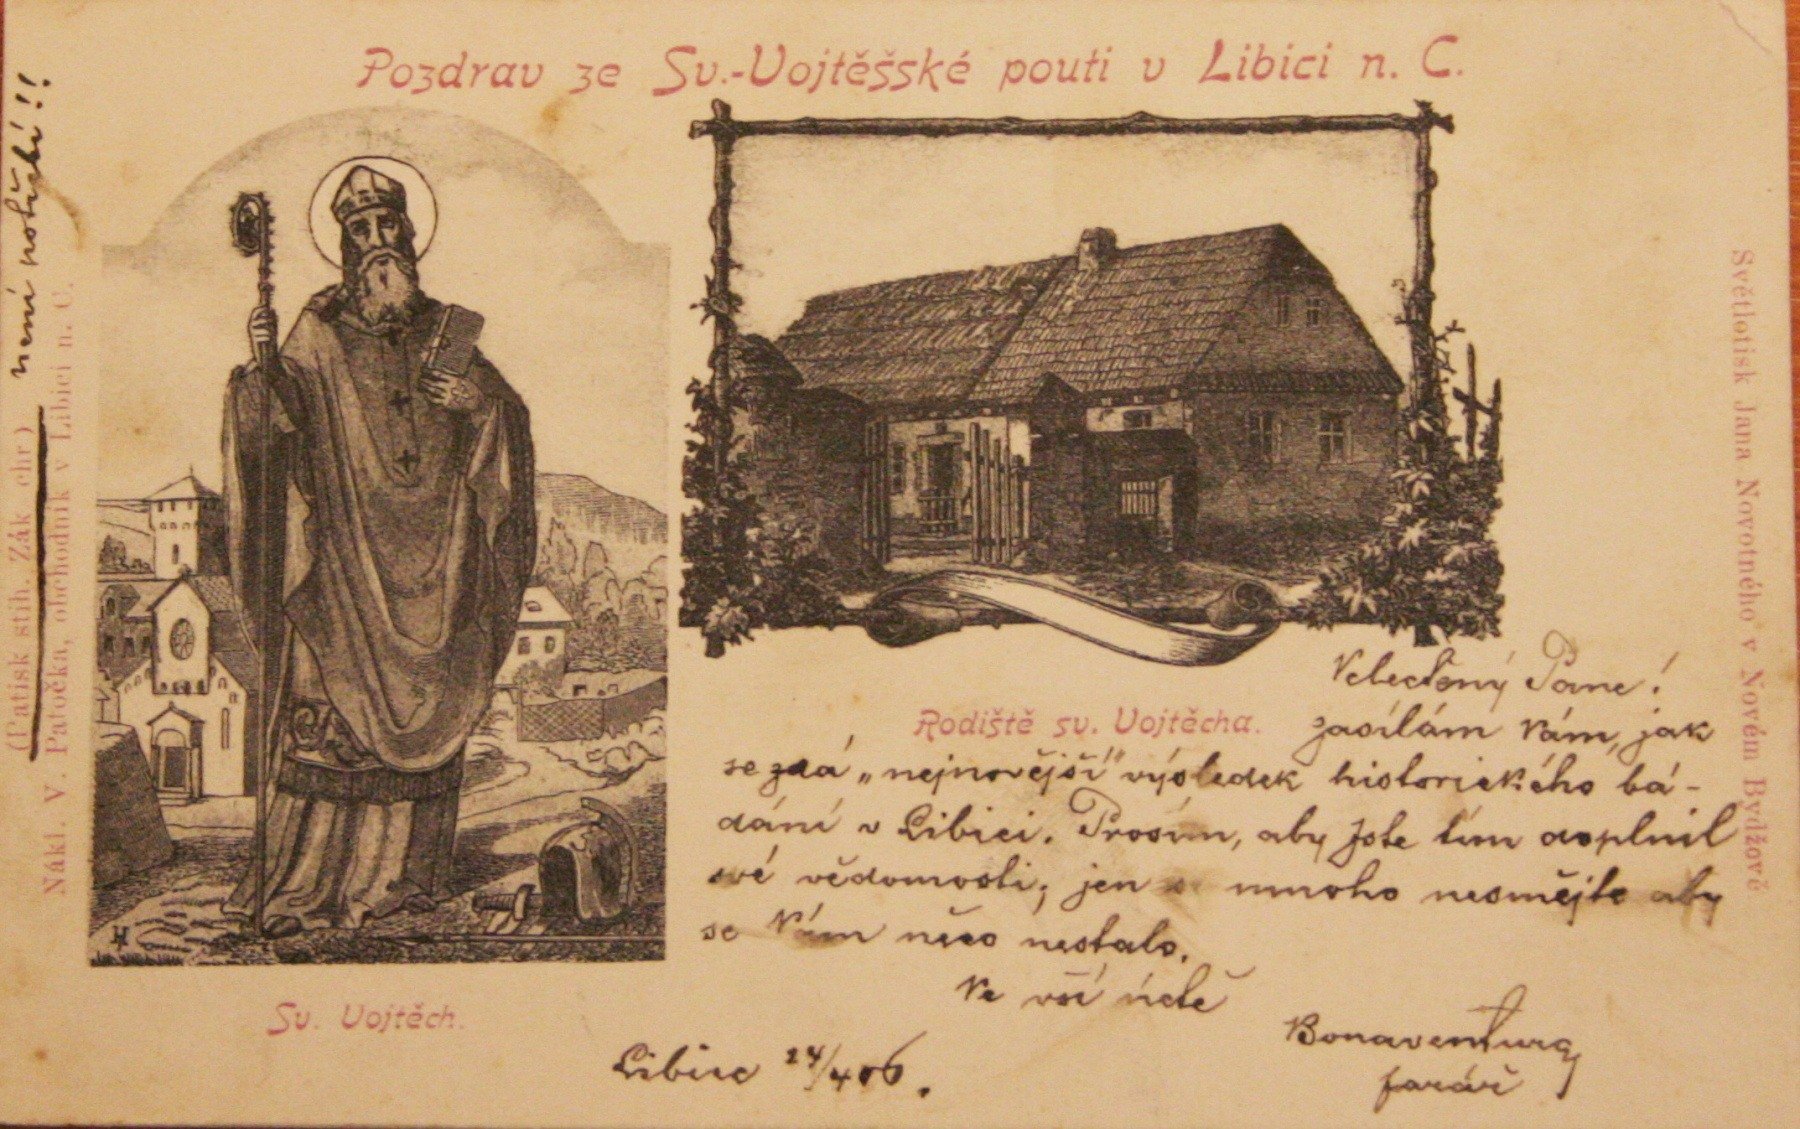 Pozdrav ze Sv.-Vojtěšské pouti v Libici n. C.
(Patisk stih. Zák. chr.) není potřebí!!
Nákl. V. Patočka, obchodník v Libici n. C.
Světlotisk Jana Novotného v Novém Bydžově
Sv. Vojtěch.
Rodiště sv. Vojtěcha.
Velectěný Pane!
zasílám Vám, jak
se zdá „nejnovější" výsledek historického bá-
dání v Libici. Prosím, aby jste tím doplnil
své vědomosti; jen mnoho nesmějte aby
se Vám něco nestalo.
Ve vší úctě
Bonaventura
farář
Libice 24/4 06.